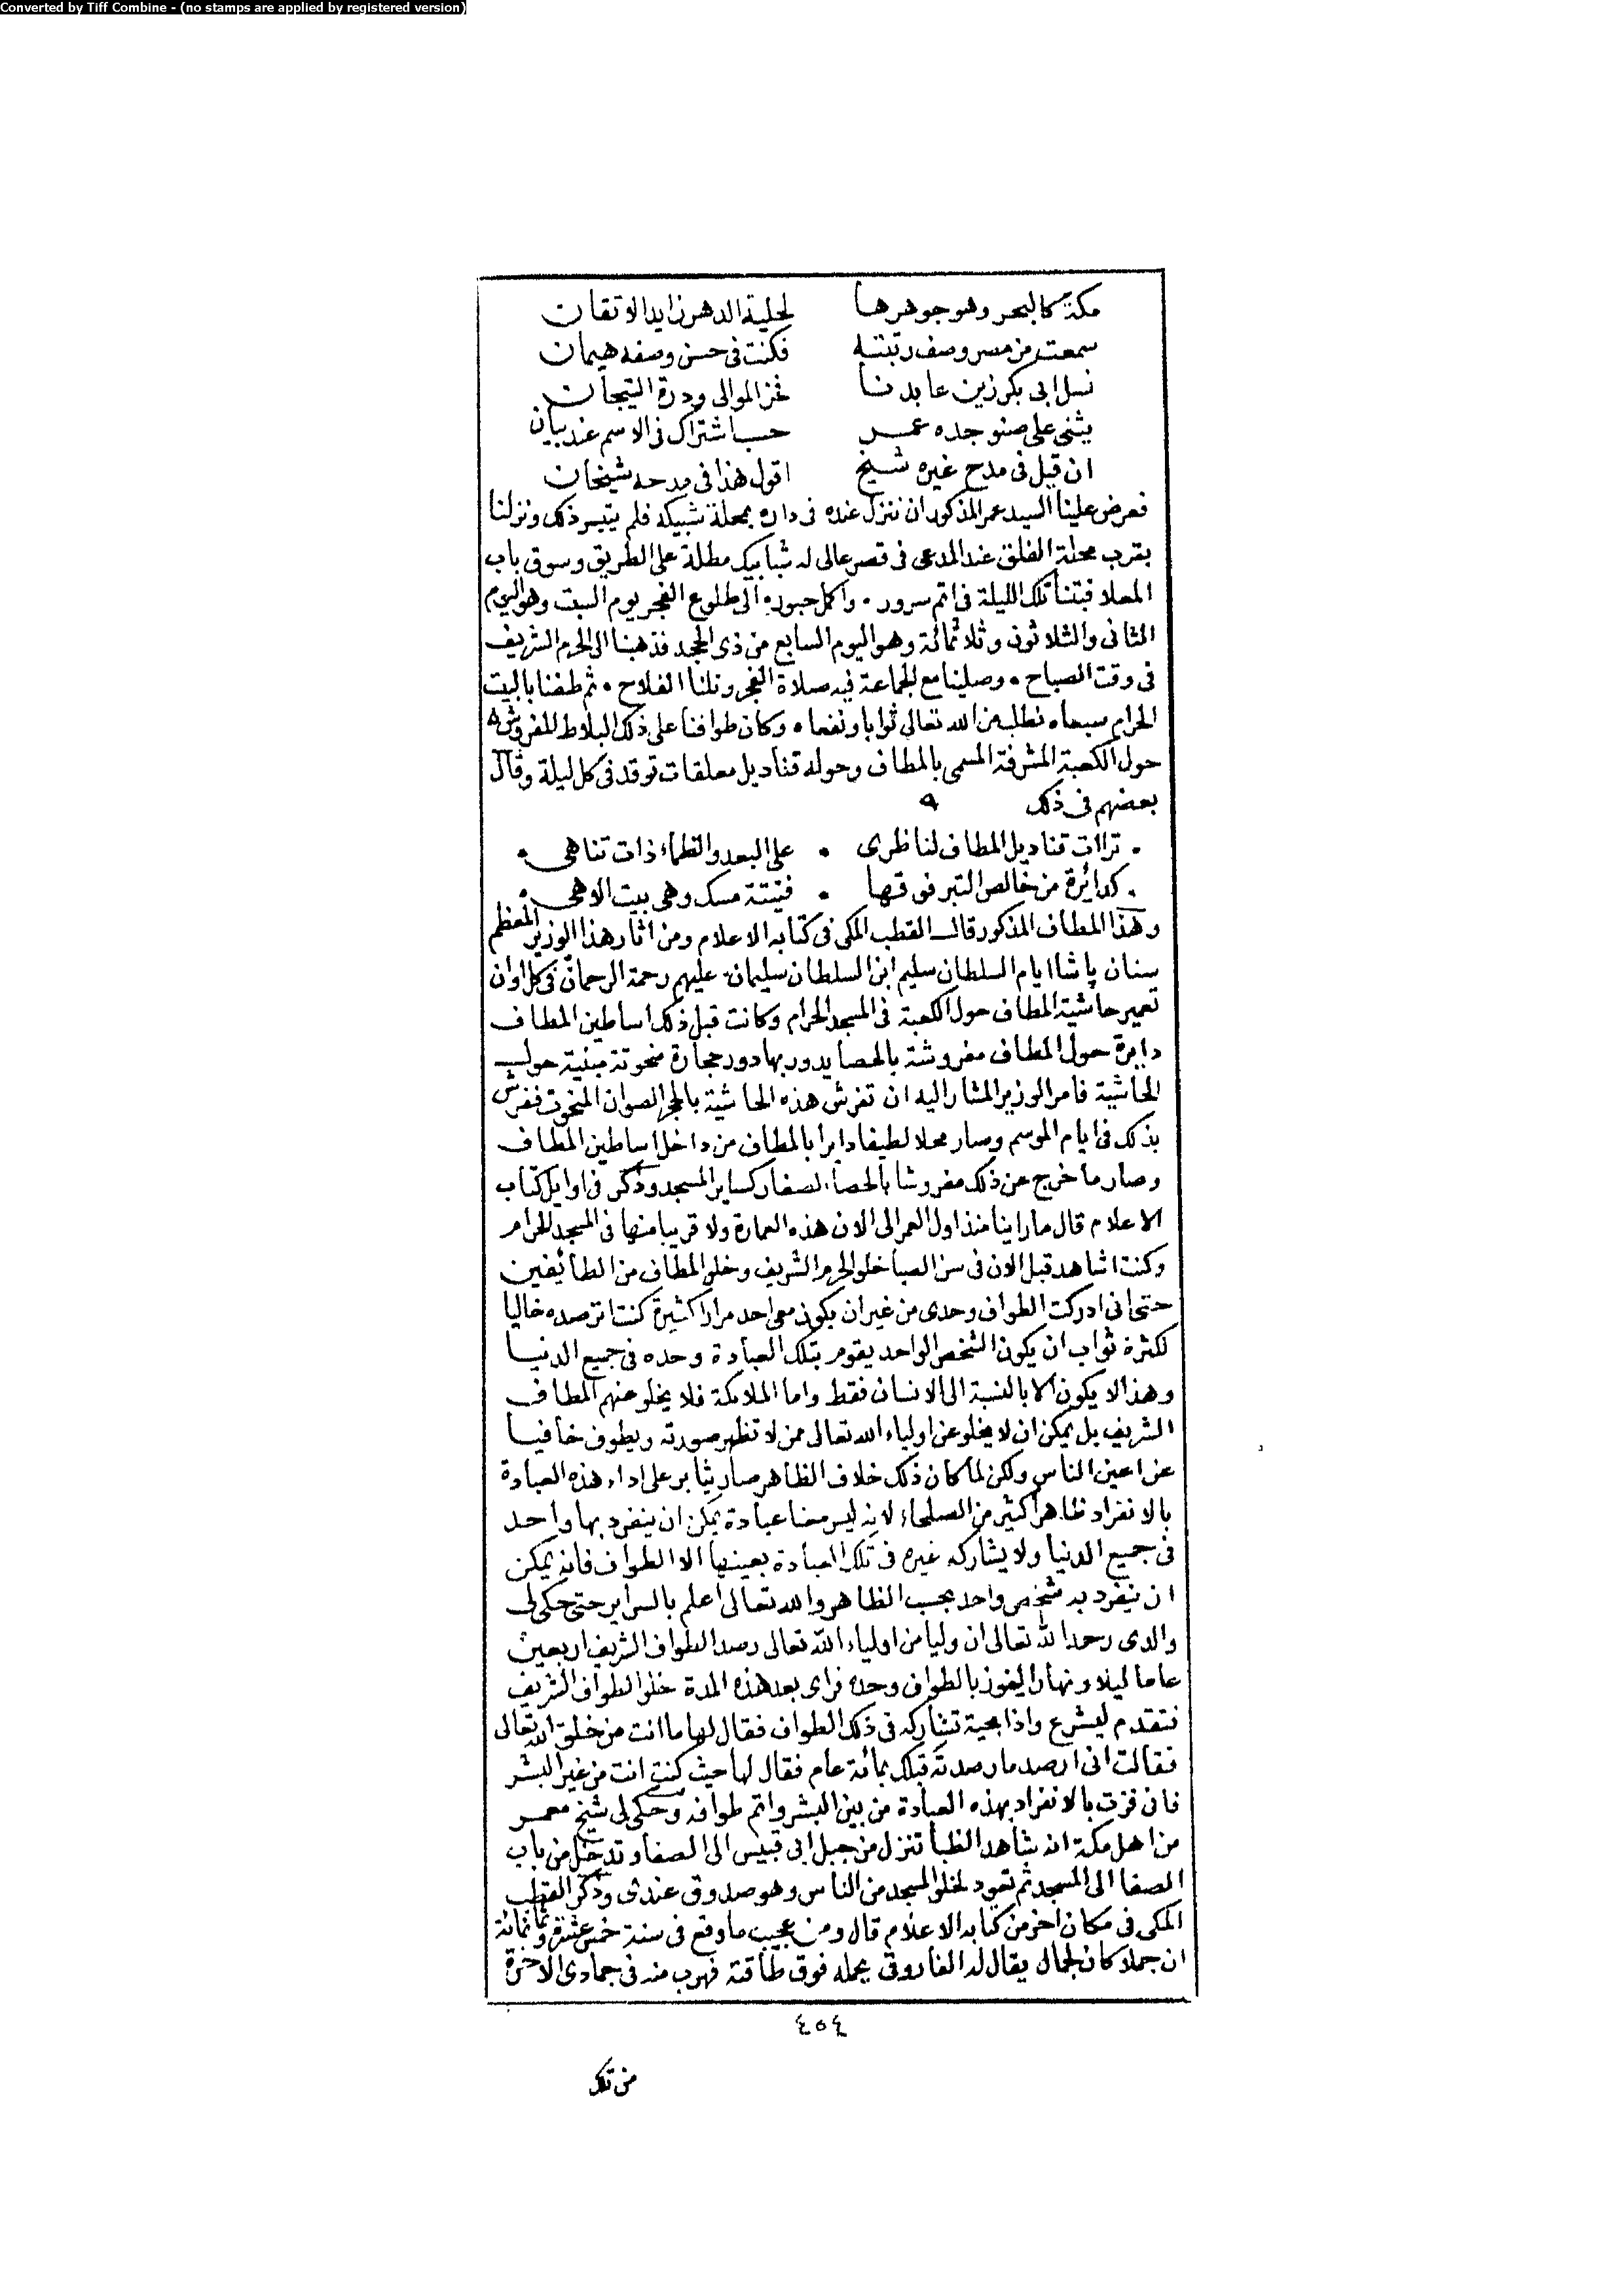 Converted by Tiff Combine - (no stamps are applied by registered version)
مكة كالبحر وهو جوهرها لحلية الدهر زايد الاتقان
سمعت من مصر وصف رتبته فكنت فى حسن وصفه هيمان
نسل ابى بكر زين عابدنا فخر الموالى ودرة التيجان
يثنى على صنو جده عمر حسب اشتراك فى الاسم عند بيان
ان قيل فى مدح غيره شيخ اقول هذا فى مدحه شيخان
فعرض علينا السيد عمر المذكور ان ننزل عنده فى داره بمحلة شبيكه فلم يتيسر ذلك ونزلنا
بقرب محلة الفلق عند المدعى فى قصر عالى له شبابيك مطلة على الطريق وسوق باب
المعلا فبتنا تلك الليلة فى اتم سرور ٠ واكمل حبور ٠ الى طلوع الفجر يوم السبت وهو اليوم
الثانى والثلاثون وثلاثمائة وهو اليوم السابع من ذى الحجه فذهبنا الى الحرم الشريف
فى وقت الصباح ٠ وصلينا مع الجماعة فيه صلاة الفجر ونلنا الفلاح ٠ ثم طفنا بالبيت
الحرام سبعا ٠ نطلب من الله تعالى ثوابا ونفعا ٠ وكان طوافنا على ذلك البلاط المفروش
حول الكعبة المشرفة المسمى بالمطاف وحوله قناديل معلقات توقد فى كل ليلة وقال
بعضهم فى ذلك
٠ تراات قناديل المطاف لناظرى ٠ على البعد والظلماء ذات تناهى ٠
٠ كدائرة من خالص التبر فوقها ٠ فتيتة مسك وهى بيت الاهى ٠
وهذا المطاف المذكور قال القطب المكى فى كتابه الاعلام ومن اثار هذا الوزير المعظم
سنان پاشا ايام السلطان سليم ابن السلطان سليمان عليهم رحمة الرحمان فى كل اوان
تعمير حاشية المطاف حول الكعبة فى المسجد الحرام وكانت قبل ذلك اساطين المطاف
دايرة حول المطاف مفروشة بالحصا يدور بها دور حجارة منحوتة مبنية حول
الحاشية فامر الوزير المشار اليه ان تفرش هذه الحاشية بالحجر الصوان المنحوت ففرش
بذلك فى ايام الموسم وصار محلا لطيفا دايرا بالمطاف من داخل اساطين المطاف
وصار ما خرج عن ذلك مفروشا بالحصا الصغار كساير المسجد وذكر فى اوايل كتاب
الاعلام قال ما راينا منذ اول العمر الى الان هذه العمارة ولا قريبا منها فى المسجد الحرام
وكنت اشاهد قبل الان فى سن الصبا خلو الحرم الشريف وخلو المطاف من الطائفين
حتى انى ادركت الطواف وحدى من غير ان يكون معى احد مرارا كثيرة كنت اترصده خاليا
لكثرة ثواب ان يكون الشخص الواحد يقوم بتلك العبادة وحده فى جميع الدنيا
وهذا لا يكون الا بالنسبة الى الانسان فقط واما الملائكة فلا يخلو عنهم المطاف
الشريف بل يمكن ان لا يخلو عن اولياء الله تعالى ممن لا تظهر صورته ويطوف خافيا
عن اعين الناس ولكن لما كان ذلك خلاف الظاهر صار يثابر على اداء هذه العبادة
بالانفراد ظاهرا كثير من الصلحاء لانه ليس معنا عبادة يمكن ان ينفرد بها واحد
فى جميع الدنيا ولا يشاركه غيره فى تلك العبادة بعينها الا الطواف فانه يمكن
ان ينفرد به شخص واحد بحسب الظاهر والله تعالى اعلم بالسراير حتى حكى لى
والدى رحمه الله تعالى ان وليا من اولياء الله تعالى رصد الطواف الشريف اربعين
عاما ليلا ونهارا ليفوز بالطواف وحده فراى بعد هذه المدة خلو الطواف الشريف
فتقدم ليشرع واذا بحية تشاركه فى ذلك الطواف فقال لها ما انت من خلق الله تعالى
فقالت انى ارصد ما رصدته قبلك بمائة عام فقال لها حيث كنت انت من غير البشر
فانى فزت بالانفراد بهذه العبادة من بين البشر واتم طوافه وحكى لى شيخ معمر
من اهل مكة انه شاهد الظبا تنزل من جبل ابى قبيس الى الصفا وتدخل من باب
الصفا الى المسجد ثم تعود لخلو المسجد من الناس وهو صدوق عندى وذكر القطب
المكى فى مكان اخر من كتابه الاعلام قال ومن عجيب ما وقع فى سنة خمس عشرة وثمانمائة
ان جملا كان لجمال يقال له الفاروقى يحمله فوق طاقته فهرب منه فى جمادى الاخرة
٤٥٤
من تلك